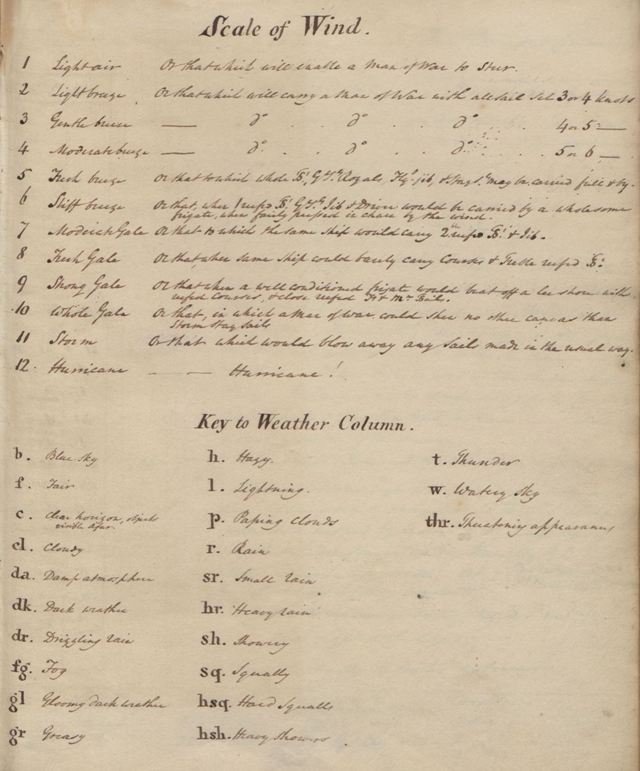 Scale of Wind.
1 Light air Or that which will enable a Man of War to Steer.
2 Light breeze Or that which will carry a Man of War with all sail set 3 or 4 knots
3 Gentle breeze — do . . do . . do . . 4 or 5 —
4 Moderate breeze — do . . do . . do . . 5 or 6 —
5 Fresh breeze Or that to which whole Royals, jib, & may be carried full & by.
6 Stiff breeze Or that, when 1 reefd Jib & Driver would be carried by a wholesome
frigate, when fairly pressed in chace by the wind.
7 Moderate Gale Or that to which the same ship would carry 2d reefd & Jib.
8 Fresh Gale Or that when same ship could barely carry Courses & Treble reefd
9 Strong Gale Or that when a well conditioned frigate would beat off a lee shore with
reefed courses, & close reefed
10 Whole Gale Or that, in which a Man of war could shew no other canvas than
Storm Stay Sails
11 Storm Or that which would blow away any Sails made in the usual way.
12. Hurricane — — Hurricane!
Key to Weather Column.
b. Blue Sky h. Hazy. t. Thunder
f. Fair l. Lightning. w. Watery Sky
c. Clear horizon, objects p. Passing Clouds thr. Threatening appearances
visible afar.
cl. Cloudy r. Rain
da. Damp atmosphere sr. Small rain
dk. Dark weather hr. Heavy rain
dr. Drizzling rain sh. Showery
fg. Fog sq. Squally
gl Gloomy dark weather hsq. Hard Squalls
gr Greasy hsh. Heavy Showers